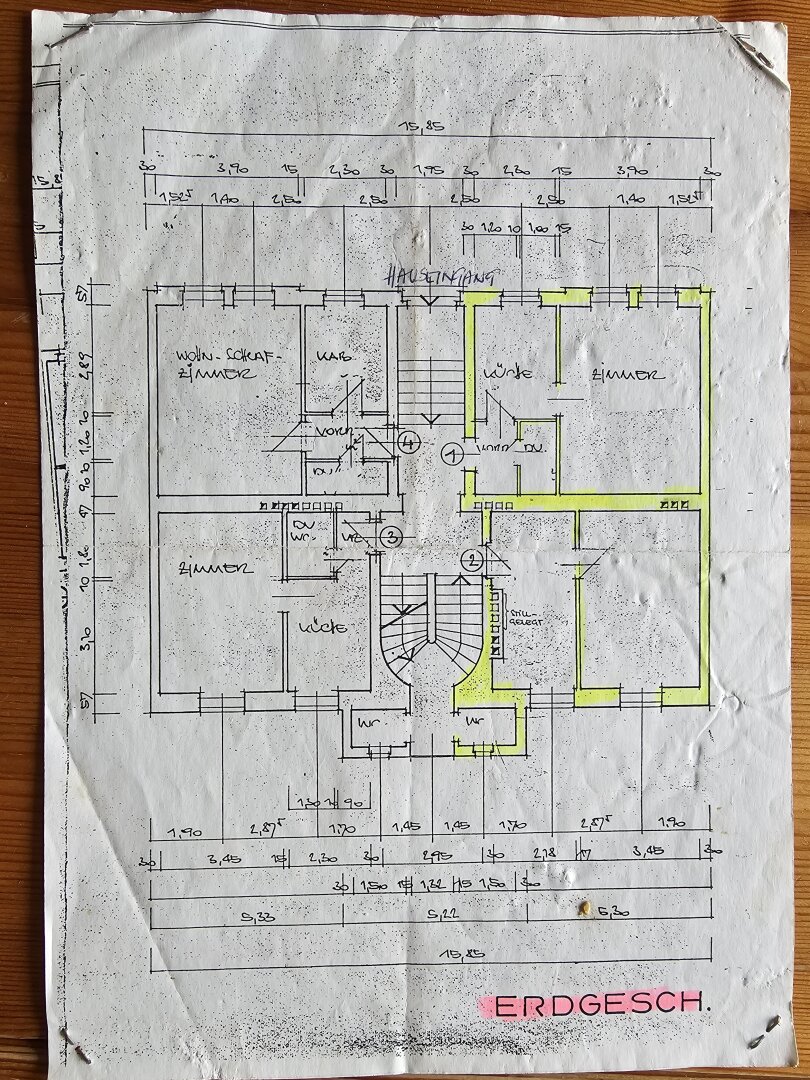 15,85
30 3,90 15 2,30 30 1,95 30 2,30 15 3,90 30
1,52⁵ 1,40 2,50 2,50 2,50 2,50 1,40 1,52⁵
30 1,20 10 1,00 15
HAUSEINGANG
57 2,89 20 1,20 10 90 20 47 1,80 10 3,10 57
WOHN-SCHLAF-
ZIMMER
KAB.
KÜCHE
ZIMMER
VORR
4
1
VORR
DU.
DU.
DU
WC.
VR.
3
2
ZIMMER
KÜCHE
STILL-
GELEGT
WC
WC
1,30 10 90
1,90 2,87⁵ 1,70 1,45 1,45 1,70 2,87⁵ 1,90
30 3,45 15 2,30 30 2,95 30 2,18 17 3,45 30
30 1,50 15 1,32 15 1,50 30
5,33 5,22 5,30
15,85
ERDGESCH.